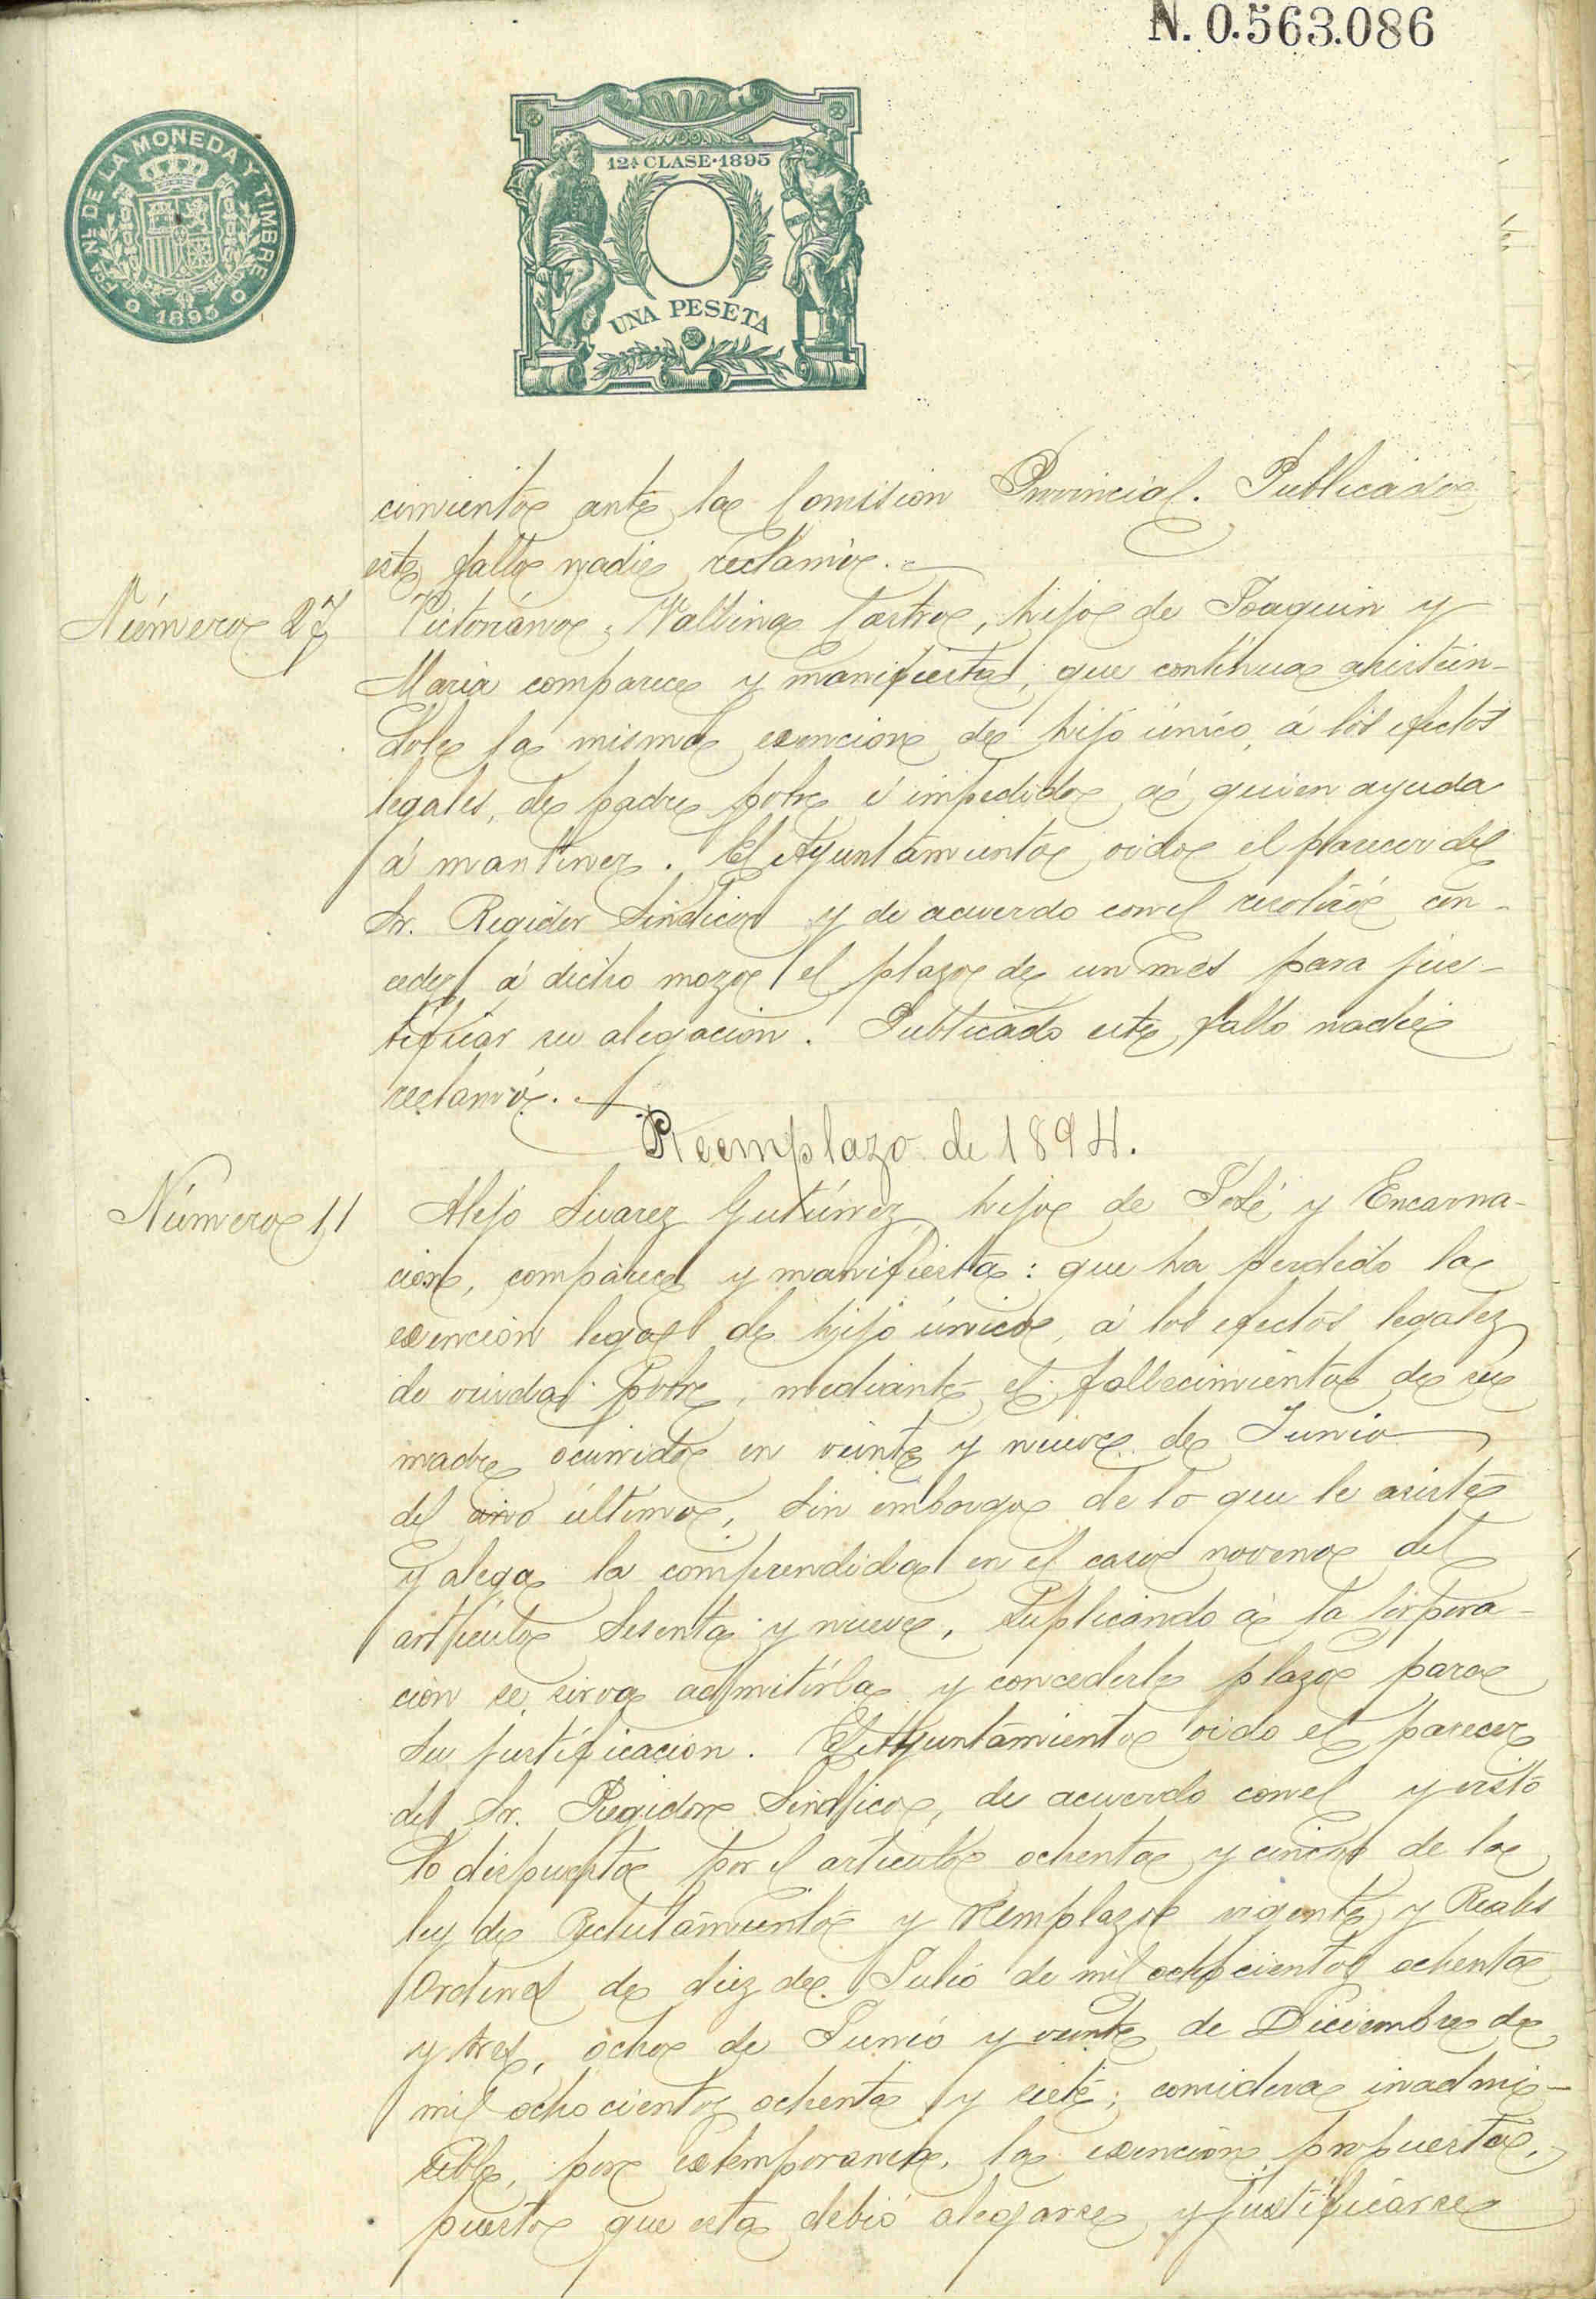 N. 0.563.086
FCA. NL. DE LA MONEDA Y TIMBRE
1895
12ª CLASE·1895
UNA PESETA
cimiento ante la Comision Provincial. Publicado
este fallo nadie reclamó.
Número 27
Victoriano Castro, hijo de Joaquin y
Maria comparece y manifiesta, que continua asistién-
dole la misma exencion de hijo único, á los efectos
legales, de padre pobre é impedido á quien ayuda
á mantener. El Ayuntamiento oido el parecer del
Sr. Regidor Sindico y de acuerdo con el resolvió con-
ceder á dicho mozo el plazo de un mes para jus-
tificar su alegacion. Publicado este fallo nadie
reclamó.
Reemplazo de 1894.
Número 11
Alejo Suarez Gutiérrez, hijo de José y Encarna-
cion, comparece y manifiesta: que ha perdido la
exención legal de hijo único, á los efectos legales
de viuda pobre, mediante el fallecimiento de su
madre ocurrido en veinte y nueve de Junio
del año último, sin embargo de lo que le asiste
y alega la comprendida en el caso noveno del
artículo sesenta y nueve, suplicando á la Corpora-
cion se sirva admitírla y concederle plazo para
su justificacion. El Ayuntamiento oido el parecer
del Sr. Regidor Sindico, de acuerdo con el y visto
lo dispuesto por el artículo ochenta y cinco de la
ley de Reclutamiento y Reemplazo vigente y Reales
Ordenes de diez de Julio de mil ochocientos ochenta
y tres, ocho de Junio y veinte de Diciembre de
mil ochocientos ochenta y siete; considera inadmi-
sible, por extemporanea, la exención propuesta,
puesto que esta debió alegarse y justificarse